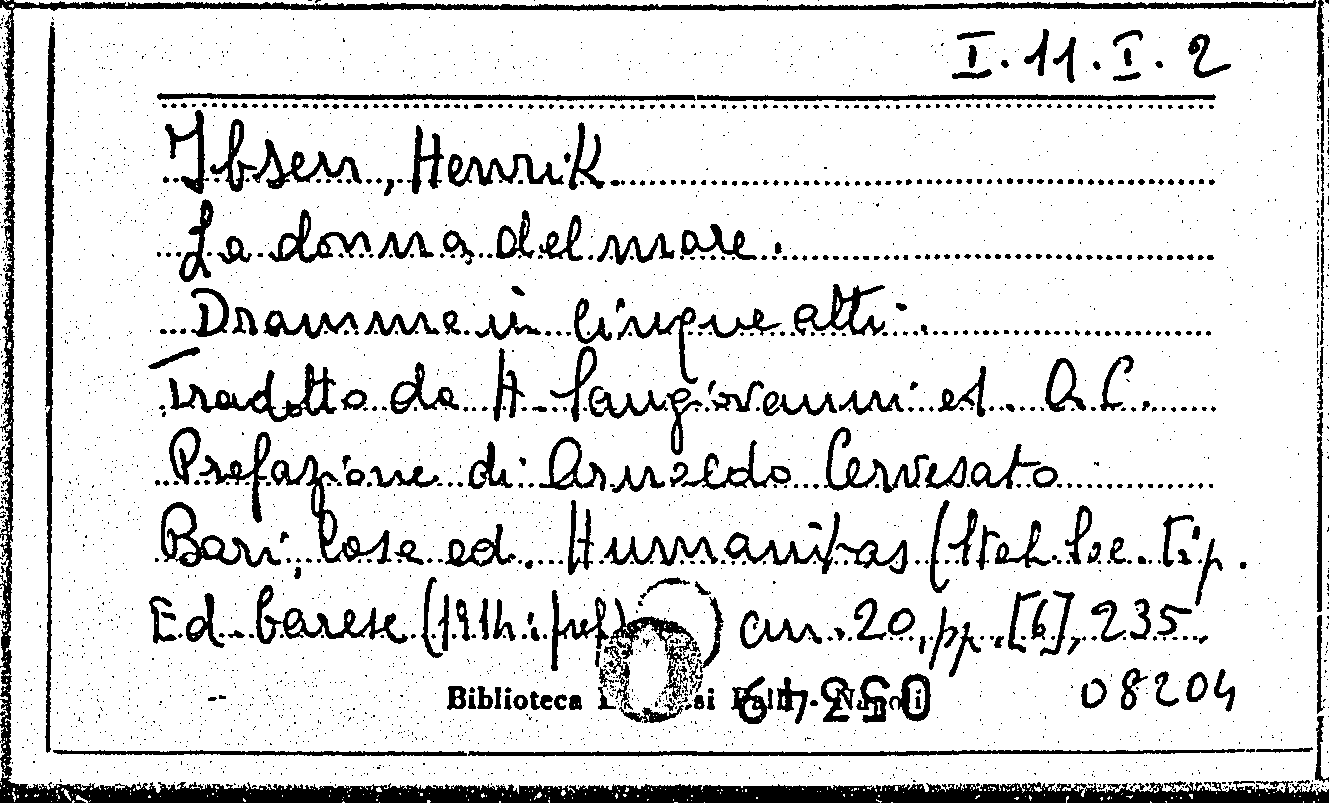 I. 11. I. 2
Ibsen, Henrik.
La donna del mare.
Dramma in cinque atti.
Tradotto da H. Sangiovanni ed. A. C.
Prefazione di Arnaldo Cervesato
Bari, Casa ed. Humanitas (Stab. Soc. Tip.
Ed. barese (1914: pref) cm. 20, pp. [6], 235.
Biblioteca Napoli
05349
08204